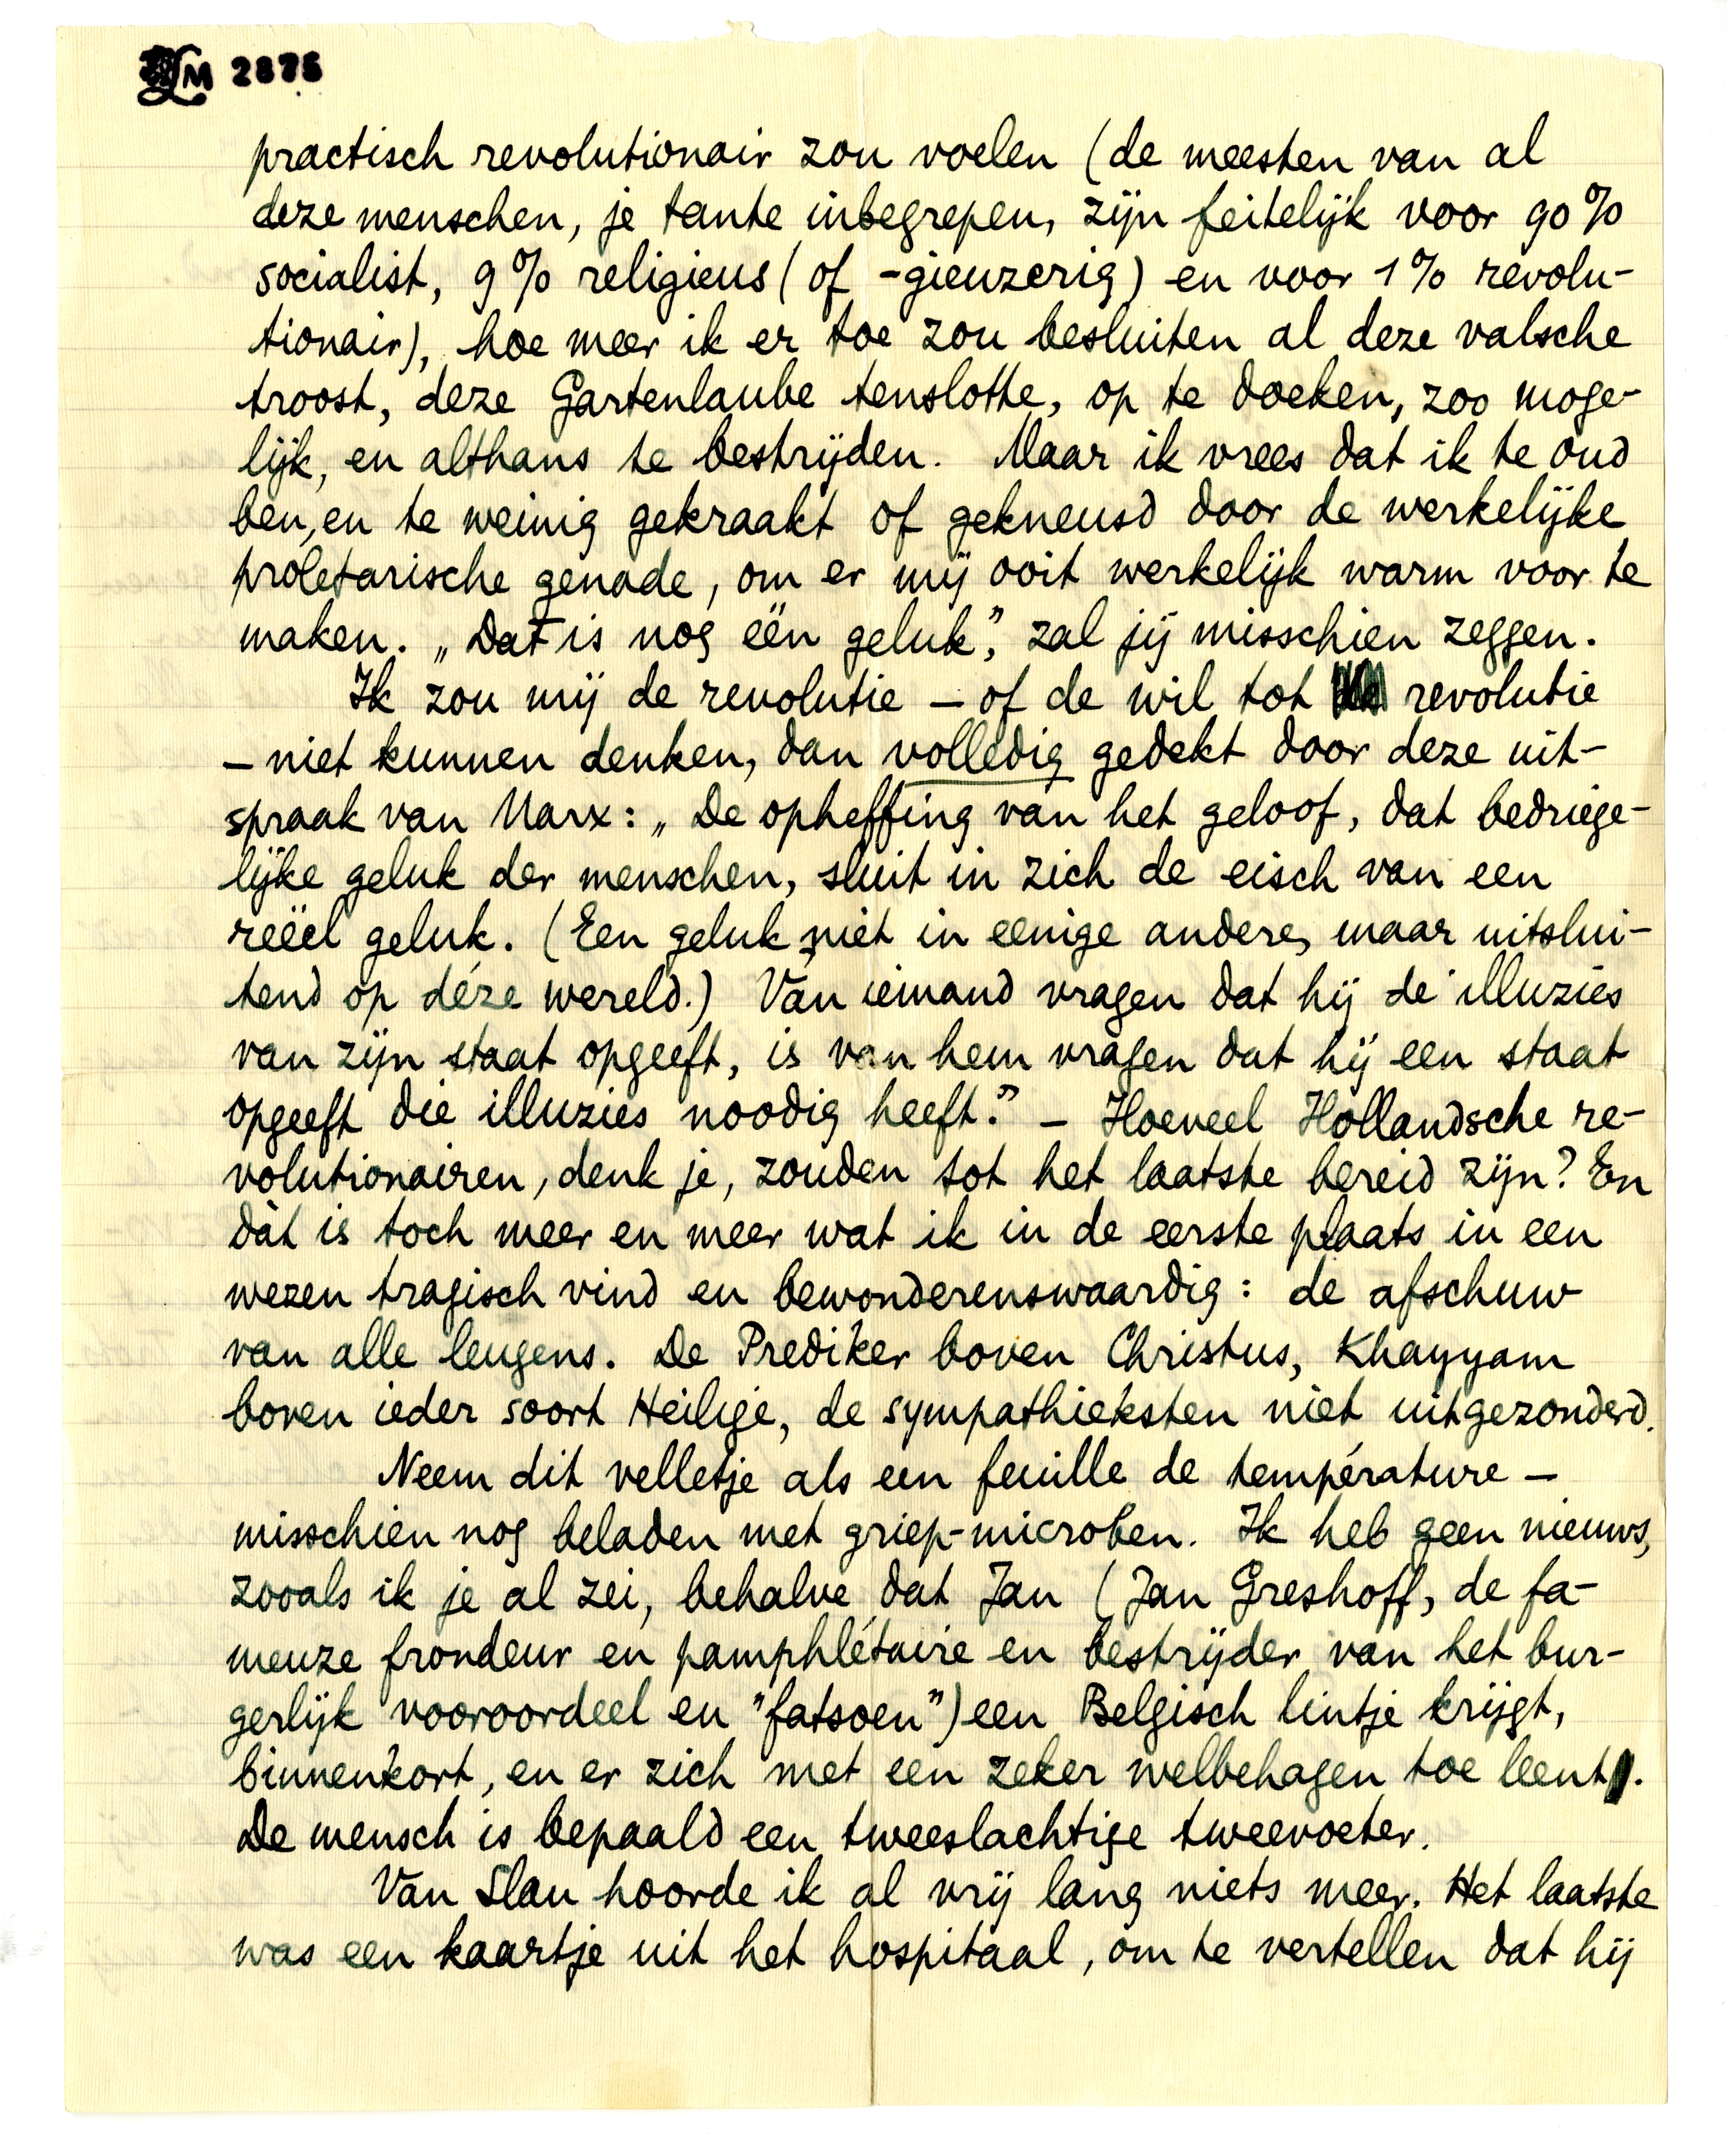 LM 2875
practisch revolutionair zou voelen (de meesten van al
deze menschen, je tante inbegrepen, zijn feitelijk voor 90%
socialist, 9% religieus (of -gieuzerig) en voor 1% revolu-
tionair), hoe meer ik er toe zou besluiten al deze valsche
troost, deze Gartenlaube tenslotte, op te doeken, zoo moge-
lijk, en althans te bestrijden. Maar ik vrees dat ik te oud
ben, en te weinig gekraakt of gekneusd door de werkelijke
proletarische genade, om er mij ooit werkelijk warm voor te
maken. „Dat is nog één geluk”, zal jij misschien zeggen.
Ik zou mij de revolutie – of de wil tot revolutie
– niet kunnen denken, dan volledig gedekt door deze uit-
spraak van Marx: „De opheffing van het geloof, dat bedriege-
lijke geluk der menschen, sluit in zich de eisch van een
reëel geluk. (Een geluk niet in eenige andere, maar uitslui-
tend op déze wereld.) Van iemand vragen dat hij de illuzies
van zijn staat opgeeft, is van hem vragen dat hij een staat
opgeeft die illuzies noodig heeft.” – Hoeveel Hollandsche re-
volutionairen, denk je, zouden tot het laatste bereid zijn? En
dàt is toch meer en meer wat ik in de eerste plaats in een
wezen tragisch vind en bewonderenswaardig: de afschuw
van alle leugens. De Prediker boven Christus, Khayyam
boven ieder soort Heilige, de sympathieksten niet uitgezonderd.
Neem dit velletje als een feuille de température –
misschien nog beladen met griep-microben. Ik heb geen nieuws,
zooals ik je al zei, behalve dat Jan (Jan Greshoff, de fa-
meuze frondeur en pamphlétaire en bestrijder van het bur-
gerlijk vooroordeel en "fatsoen") een Belgisch lintje krijgt,
binnenkort, en er zich met een zeker welbehagen toe leent.
De mensch is bepaald een tweeslachtige tweevoeter.
Van Slau hoorde ik al vrij lang niets meer. Het laatste
was een kaartje uit het hospitaal, om te vertellen dat hij